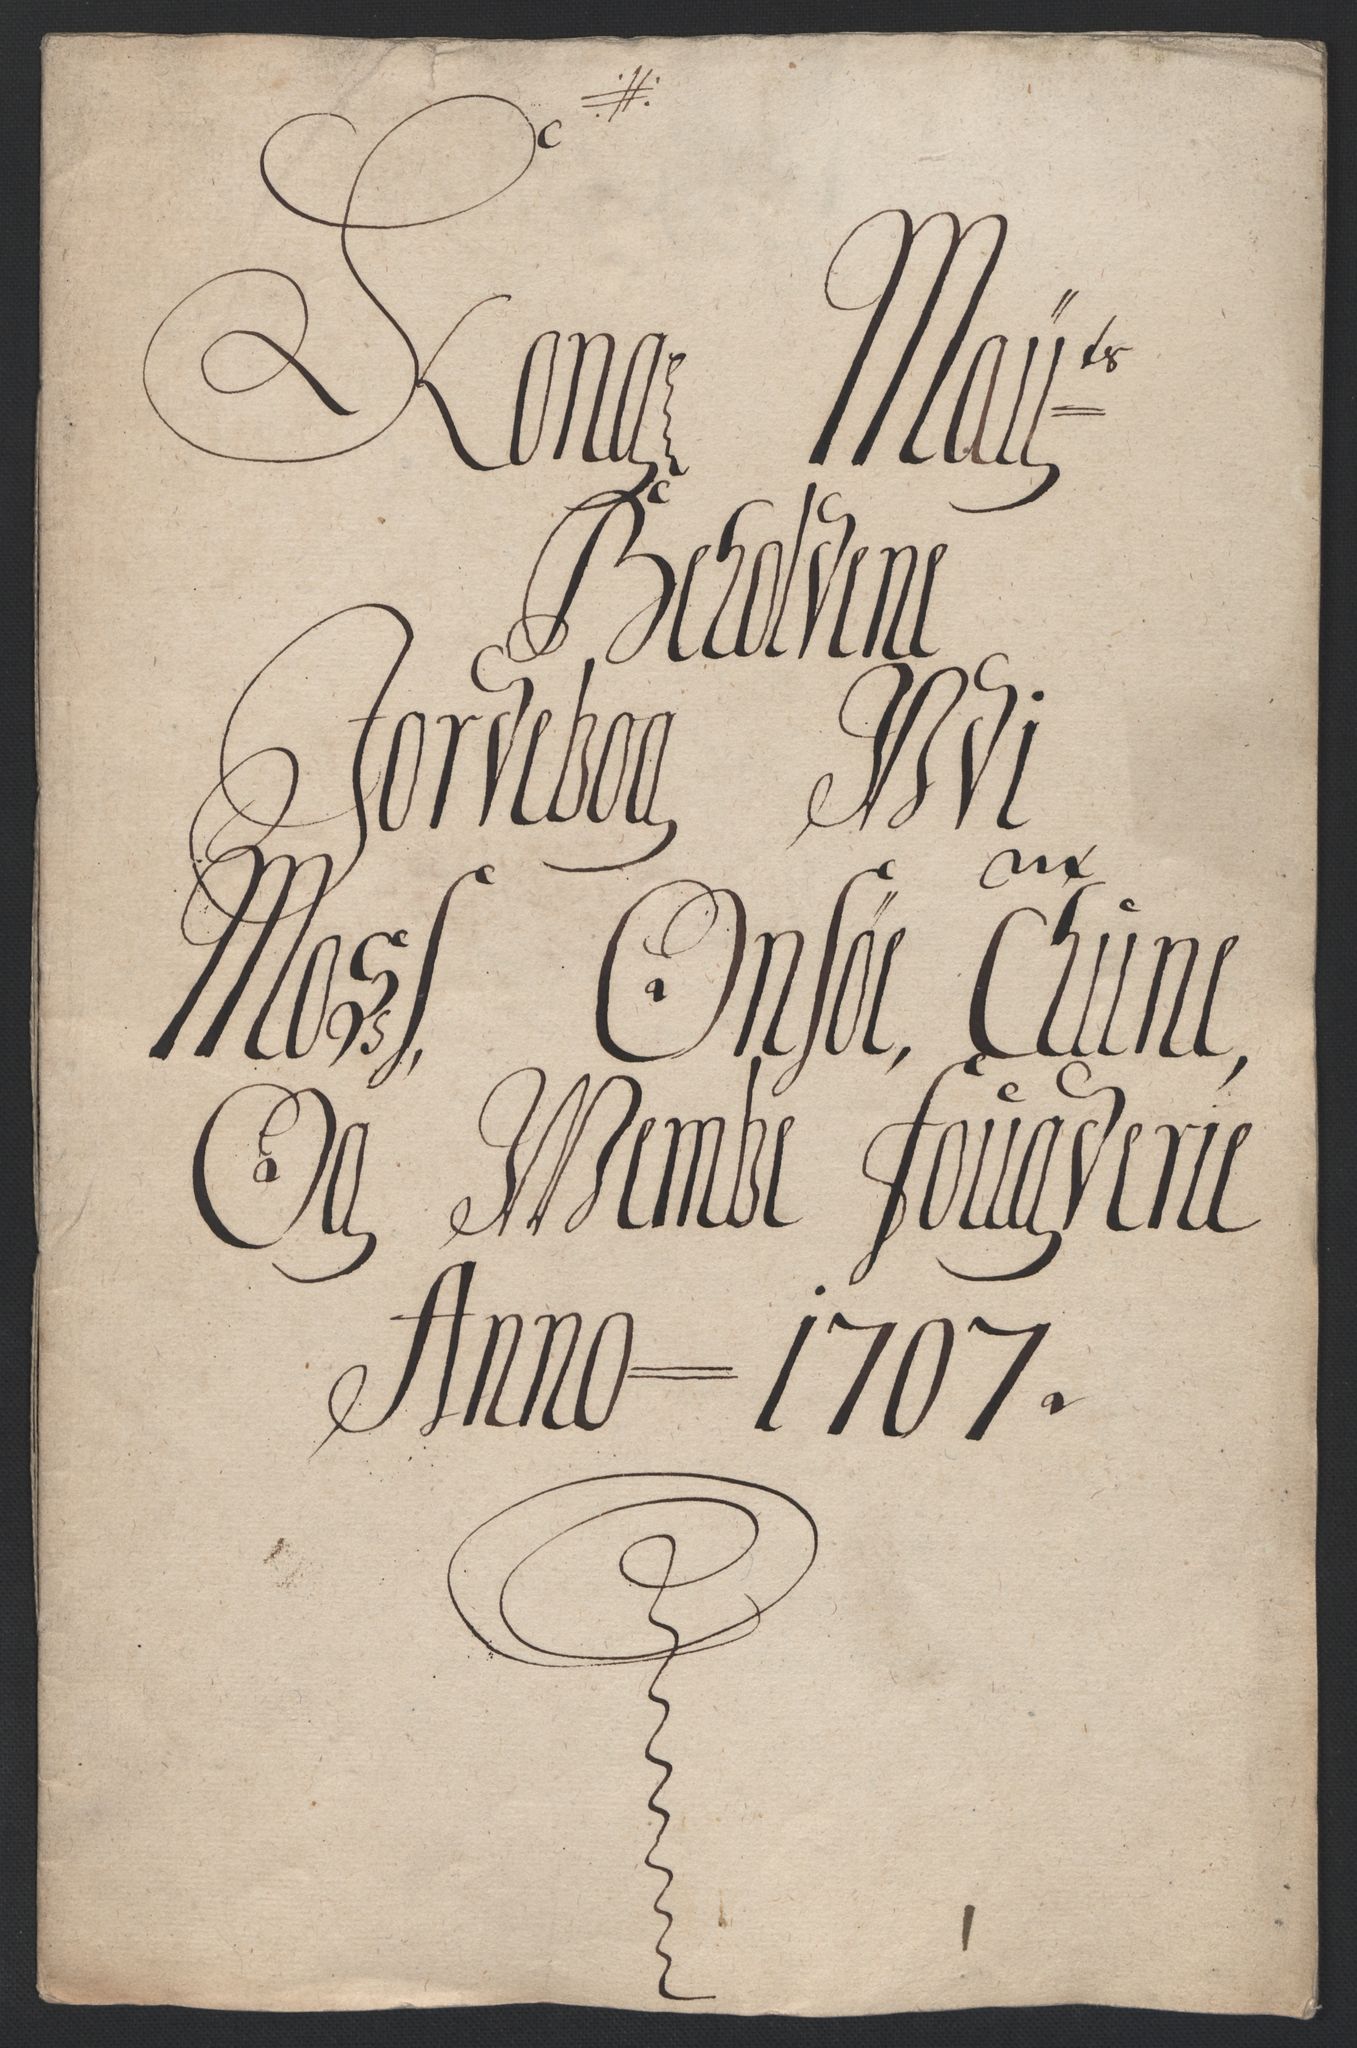 Kong: Maÿ:ts
Beholdene
Jordebog Udi
Moss, Onsöe, Thune,
Og Wembe fougderie
Anno 1707.